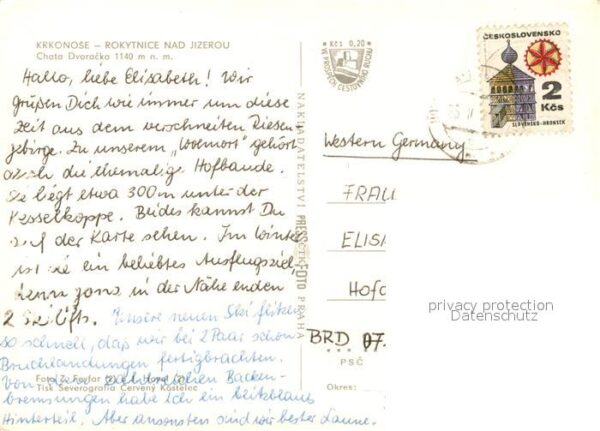 KRKONOŠE – ROKYTNICE NAD JIZEROU
Chata Dvoračka 1140 m n. m.
Hallo, liebe Elisabeth! Wir
grüßen Dich wie immer um diese
Zeit aus dem verschneiten Riesen-
gebirge. Zu unserem „Wohnort" gehört
auch die ehemalige Hofbaude.
Sie liegt etwa 300m unter der
Kesselkoppe. Beides kannst Du
auf der Karte sehen. Im Winter
ist sie ein beliebtes Ausflugsziel,
denn ganz in der Nähe enden
2 Skilifts. Unsere neuen Ski flitzen
so schnell, daß wir bei 2 Paar schon
Bruchlandungen fertigbrachten.
Von den zahlreichen Backen-
bremsungen habe ich ein blitzblaues
Hinterteil. Aber ansonsten sind wir bester Laune.
Tisk Severografia Červený Kostelec
NAKLADATELSTVÍ PRESSFOTO PRAHA
Kčs 0,20
VE PROSPĚCH CESTOVNÍHO RUCHU
ČESKOSLOVENSKO
2
Kčs
SLOVENSKO-HRONSEK
Western Germany
FRAU
ELIS
Hofc
BRD 07.
PSČ
Okres:
privacy protection
Datenschutz